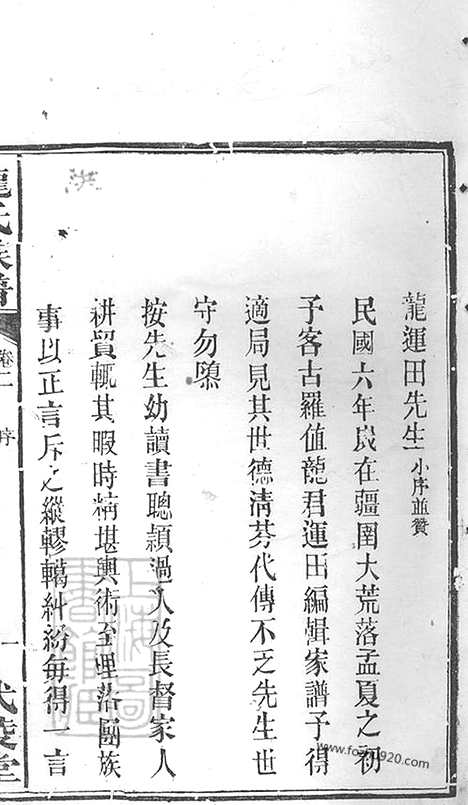 龍運田先生小序並贊
民國六年歲在疆圉大荒落孟夏之初
予客古羅值龍君運田編輯家譜予得
適局見其世德清芬代傳不乏先生世
守勿隳
按先生幼讀書聰穎過人及長督家人
耕貿輒其暇時精堪輿術至理落團族
事以正言斥之縱轇轕糾紛每得一言
龍氏族譜
卷二
序
一
武陵堂
上海圖書館藏
www.fozu920.com